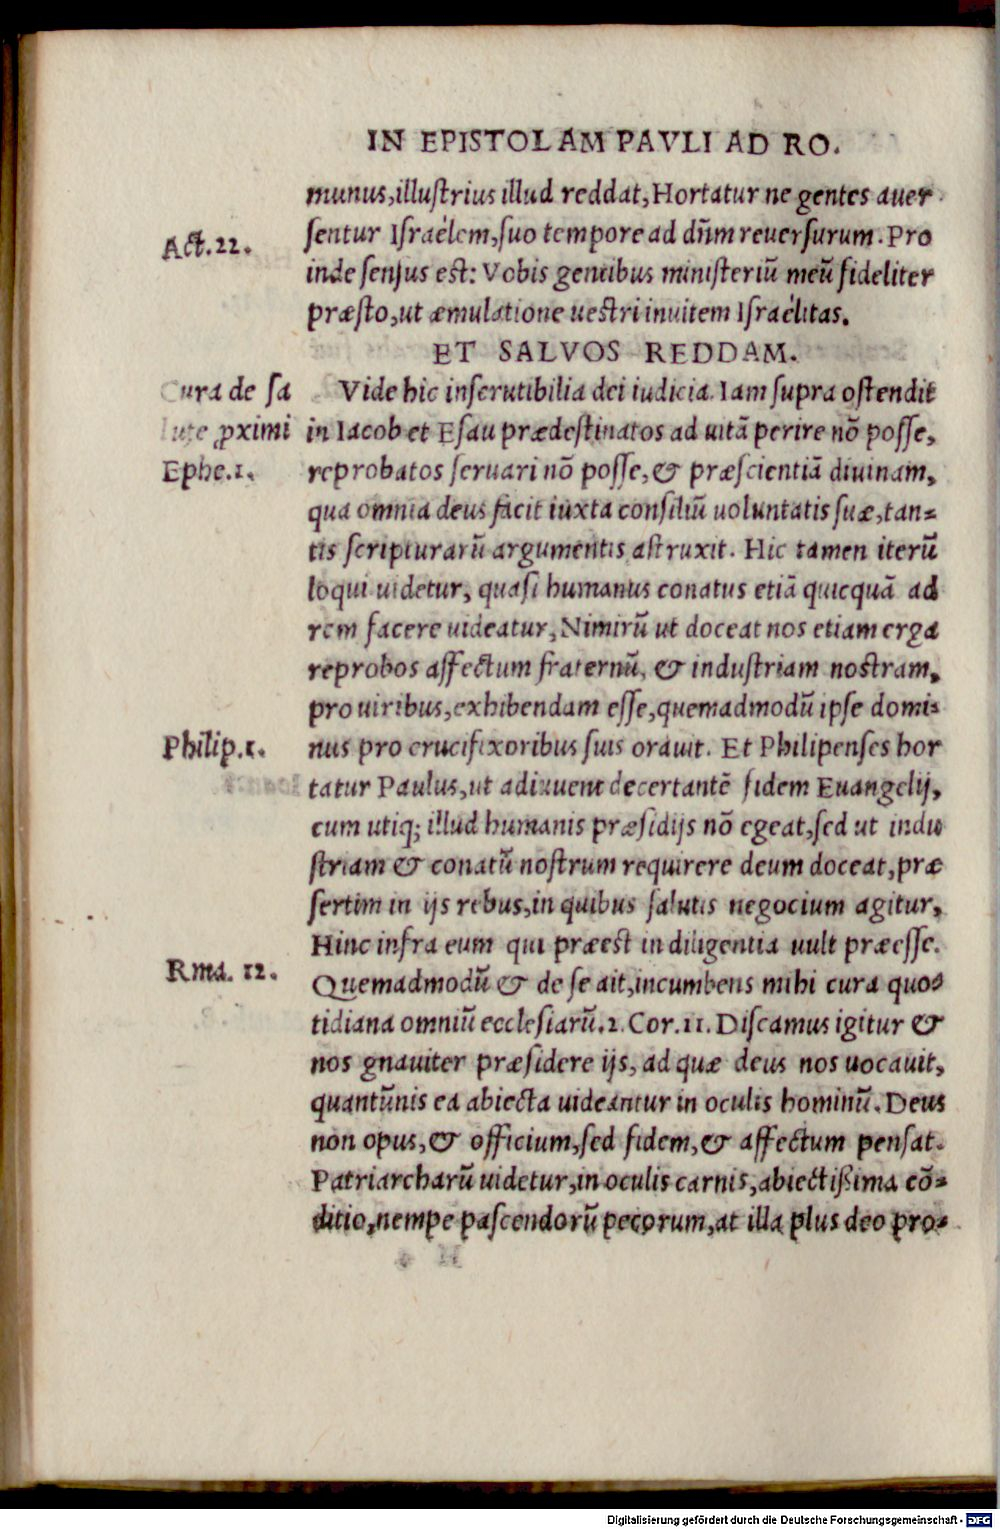 IN EPISTOLAM PAVLI AD RO.
munus, illustrius illud reddat, Hortatur ne gentes auer
sentur Israëlem, suo tempore ad dñm reuersurum. Pro
Act. 22.
inde sensus est: Vobis gentibus ministeriũ meũ fideliter
præsto, ut æmulatione uestri inuitem Israëlitas.
ET SALVOS REDDAM.
Cura de sa
lute ꝓximi
Ephe. 1.
Vide hic inscrutibilia dei iudicia. Iam supra ostendit
in Iacob et Esau prædestinatos ad uitã perire nõ posse,
reprobatos seruari nõ posse, & præscientiã diuinam,
qua omnia deus facit iuxta consiliũ uoluntatis suæ, tan-
tis scripturarũ argumentis astruxit. Hic tamen iterũ
loqui uidetur, quasi humanus conatus etiã quicquã ad
rem facere uideatur, Nimirũ ut doceat nos etiam erga
reprobos affectum fraternũ, & industriam nostram,
pro uiribus, exhibendam esse, quemadmodũ ipse domi-
Philip. 1.
nus pro crucifixoribus suis orauit. Et Philipenses hor
tatur Paulus, ut adiuuent decertantẽ fidem Euangelij,
cum utiq; illud humanis præsidijs nõ egeat, sed ut indu
striam & conatũ nostrum requirere deum doceat, præ
sertim in ijs rebus, in quibus salutis negocium agitur,
Hinc infra eum qui præest in diligentia uult præesse.
Rma. 12.
Quemadmodũ & de se ait, incumbens mihi cura quo-
tidiana omniũ ecclesiarũ. 2. Cor. 11. Discamus igitur &
nos gnauiter præsidere ijs, ad quæ deus nos uocauit,
quantũnis ea abiecta uideantur in oculis hominũ. Deus
non opus, & officium, sed fidem, & affectum pensat.
Patriarcharũ uidetur, in oculis carnis, abiectißima cõ-
ditio, nempe pascendorũ pecorum, at illa plus deo pro-
Digitalisierung gefördert durch die Deutsche Forschungsgemeinschaft - DFG